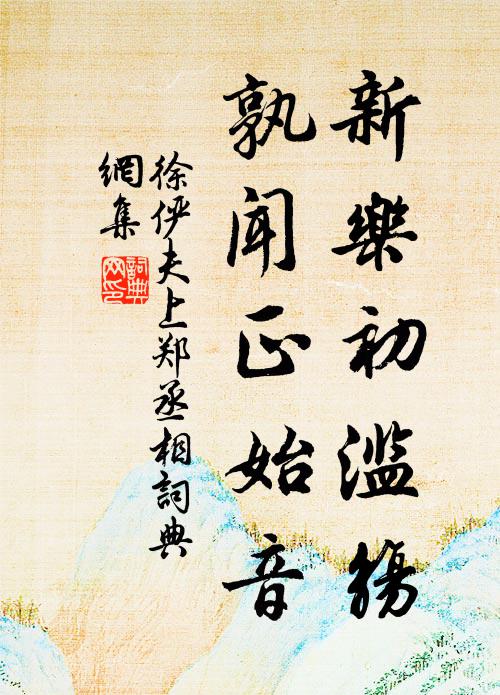 新樂初滥觴
孰闻正始音
徐俨夫上郑丞相詞典
網集
詞典网印